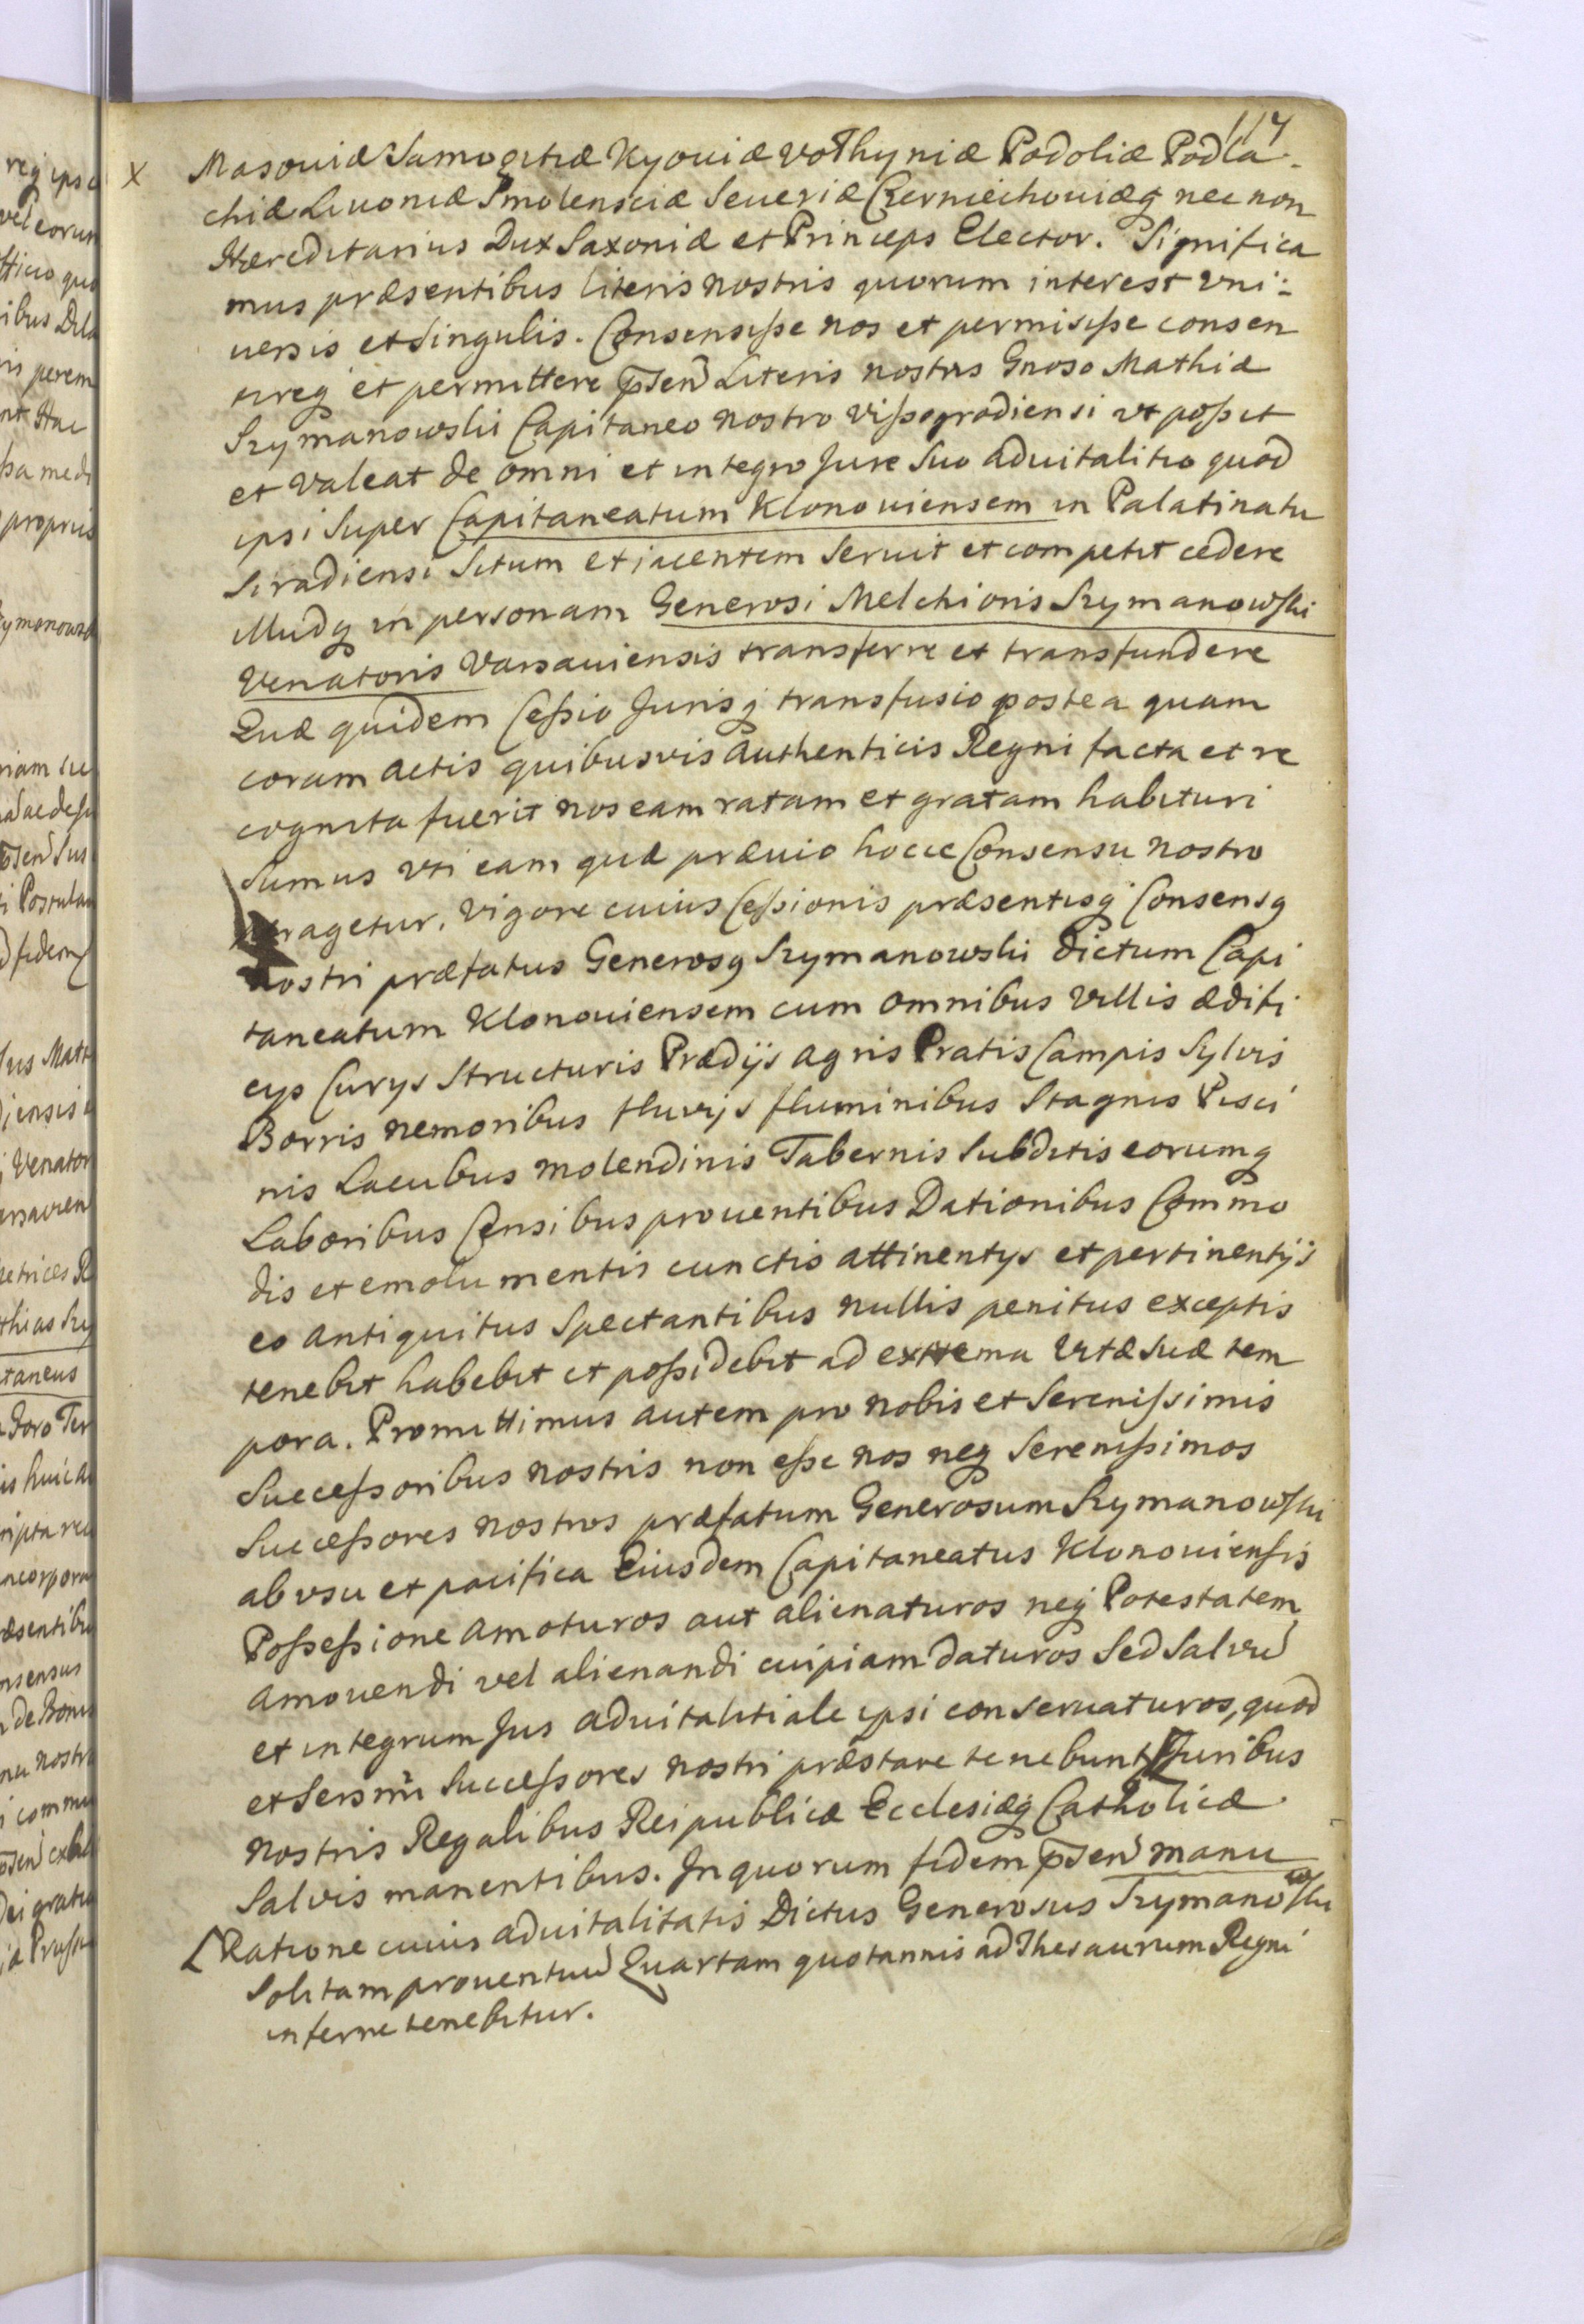 117
x Masouiæ Samogitiæ Kyouiæ Volhyniæ Podoliæ Podla-
chiæ Liuoniæ Smolensciæ Seueriæ Czerniechouiæq nec non
Hæreditarius Dux Saxoniæ et Princeps Elector. Significa
mus præsentibus literis nostris quorum interest vni:
uersis et singulis. Consensiße nos et permisiße consen
tireq et permittere pn̄sen Literis nostris Gnoso Mathiæ
Szymanowski Capitaneo nostro Vißogrodiensi vt poßit
et valeat de omni et integro Jure suo aduitalitio quod
ipsi super Capitaneatum Klonouiensem in Palatinatu
Siradiensi situm et iacentem seruit et competit cedere
illudq in personam Generosi Melchioris Szymanowski
Venatoris Varsauiensis transferre et transfundere
Quæ quidem Ceßio Jurisq transfusio postea quam
coram actis quibusvis authenticis Regni facta et re
cognita fuerit nos eam ratam et gratam habituri
sumus vti eam quæ præuio hocce Consensu nostro
peragetur. Vigore cuius Ceßionis præsentisq Consensq
nostri præfatus Generosq Szymanowski dictum Capi
taneatum Klonouiensem cum omnibus villis ædifi
cys Curys structuris Prædijs agris Pratis Campis Sylvis
Borris nemoribus fluvijs fluminibus stagnis Pisci
nis Lacubus molendinis Tabernis subditis eorumq
Laboribus Censibus prouentibus Dationibus Commo
dis et emolumentis cunctis attinentys et pertinentijs
eo antiquitus spectantibus nullis penitus exceptis
tenebit habebit et poßidebit ad extrema vitæ suæ tem
pora. Promittimus autem pro nobis et Sereniſsimis
Succeſsoribus nostris non eſse nos neq Sereniſsimos
Succeſsores nostros præfatum Generosum Szymanowski
ab vsu et pacifica Eiusdem Capitaneatus Klonouienſis
Poſseſsione amoturos aut alienaturos neq Potestatem
amouendi vel alienandi cuipiam daturos Sed Salvu
et integrum Jus aduitalitiale ipsi conseruaturos, quod
et Sersm̄i Succeſsores nostri præstare tenebunt Juribus
nostris Regalibus Reipublicæ Ecclesiæq Catholicæ
Salvis manentibus. In quorum fidem pn̄sen manu
Ratione cuius aduitalitatis Dictus Generosus Szymanowski
Solitam prouentuu Quartam quotannis ad Thesaurum Regni
inferre tenebitur.